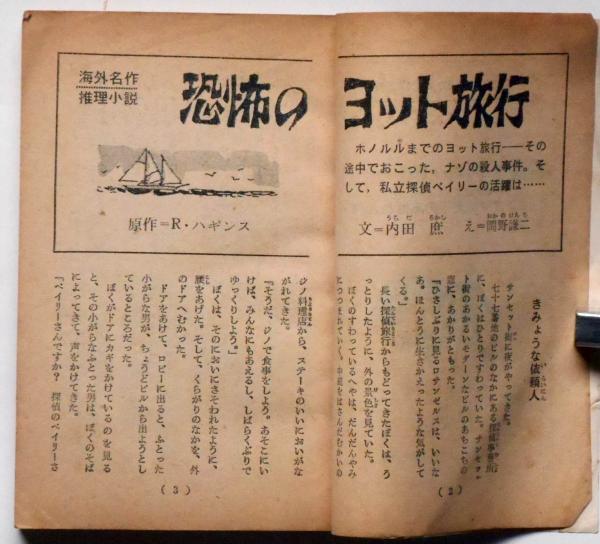 海外名作
推理小説
恐怖のヨット旅行
ホノルルまでのヨット旅行――その
途中でおこった，ナゾの殺人事件。そ
して，私立探偵ベイリーの活躍は……
原作＝R・ハギンス
文＝内田　庶　え＝岡野謙二
きみょうな依頼人
サンセット街に夜がやってきた。
七十七番地のビルのなかにある探偵事務所
に、ぼくはひとりですわっていた。サンセッ
ト街のあかるいモダーンなビルのあちこちの
窓に、あかりがともった。
『ひさしぶりに見るロサンゼルスは、いいな
あ。ほんとうに生きかえったような気がして
くる。』
長い探偵旅行からもどってきたぼくは、う
っとりしたように、外の景色を見ていた。
ぼくのすわっているへやは、だんだんやみ
につつまれていく。
(2)
ジノ料理店から、ステーキのいいにおいがな
がれてきた。
『そうだ、ジノで食事をしよう。あそこにい
けば、みんなにもあえるし、しばらくぶりで
ゆっくりしよう。』
ぼくは、そのにおいにさそわれたように、
腰をあげた。そして、くらがりのなかを、外
のドアへむかった。
ドアをあけて、ロビーに出ると、ふとった
小がらな男が、ちょうどビルから出ようとし
ているところだった。
ぼくがドアにカギをかけているのを見る
と、その小がらなふとった男は、ぼくのそば
によってきて、声をかけてきた。
「ベイリーさんですか？　探偵のベイリーさ
(3)